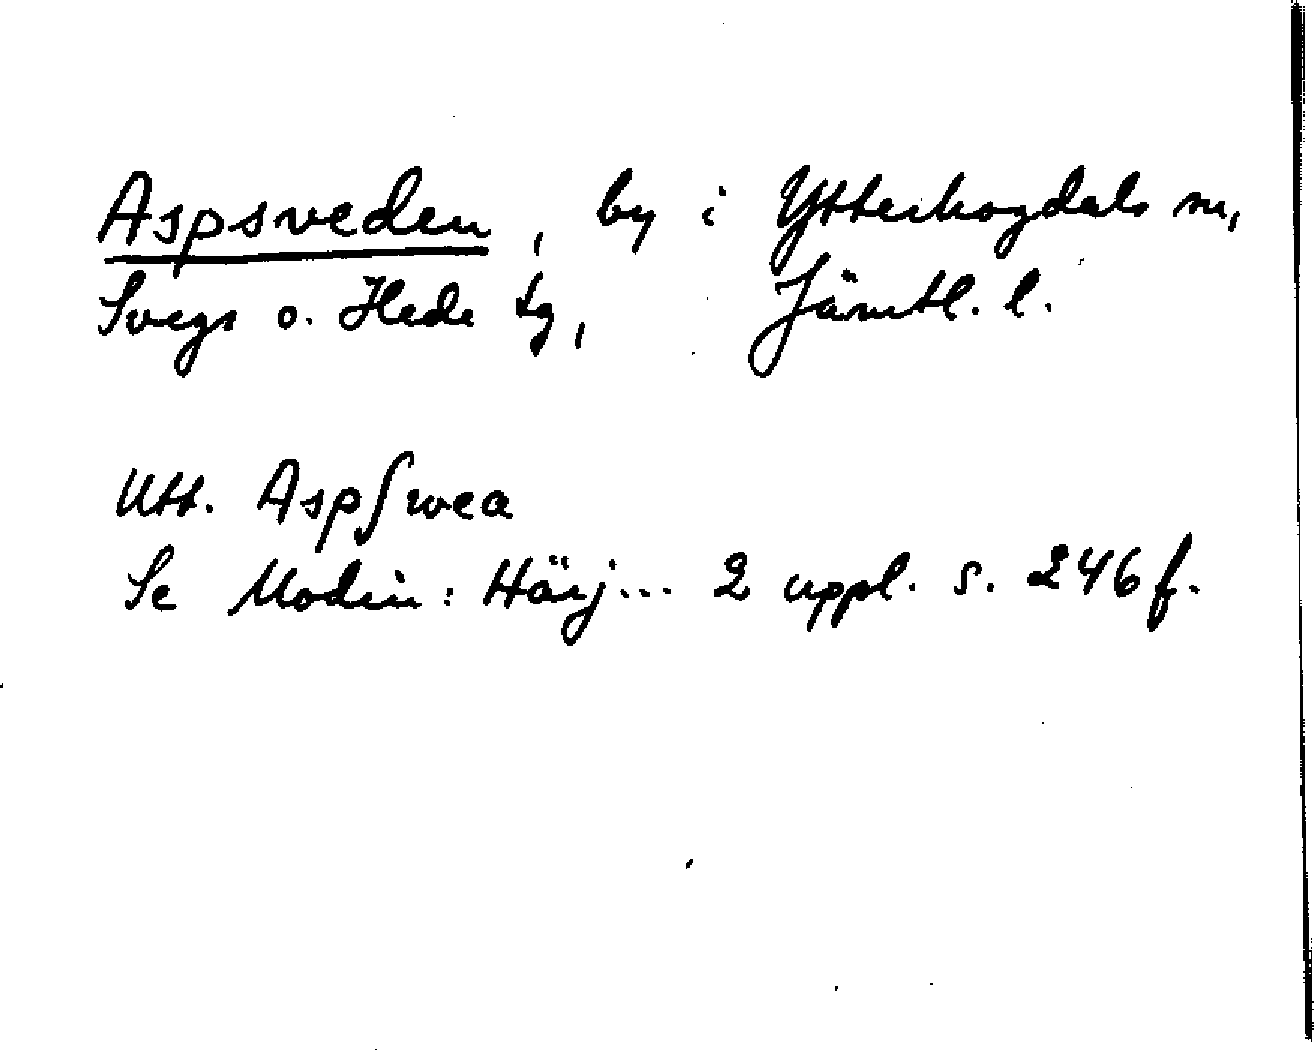 Aspsveden, by i Ytterhogdals sn,
Svegs o. Hede tg, Jämtl. l.
Utt. Aspʃwea
Se Modin: Härj... 2 uppl. s. 246 f.